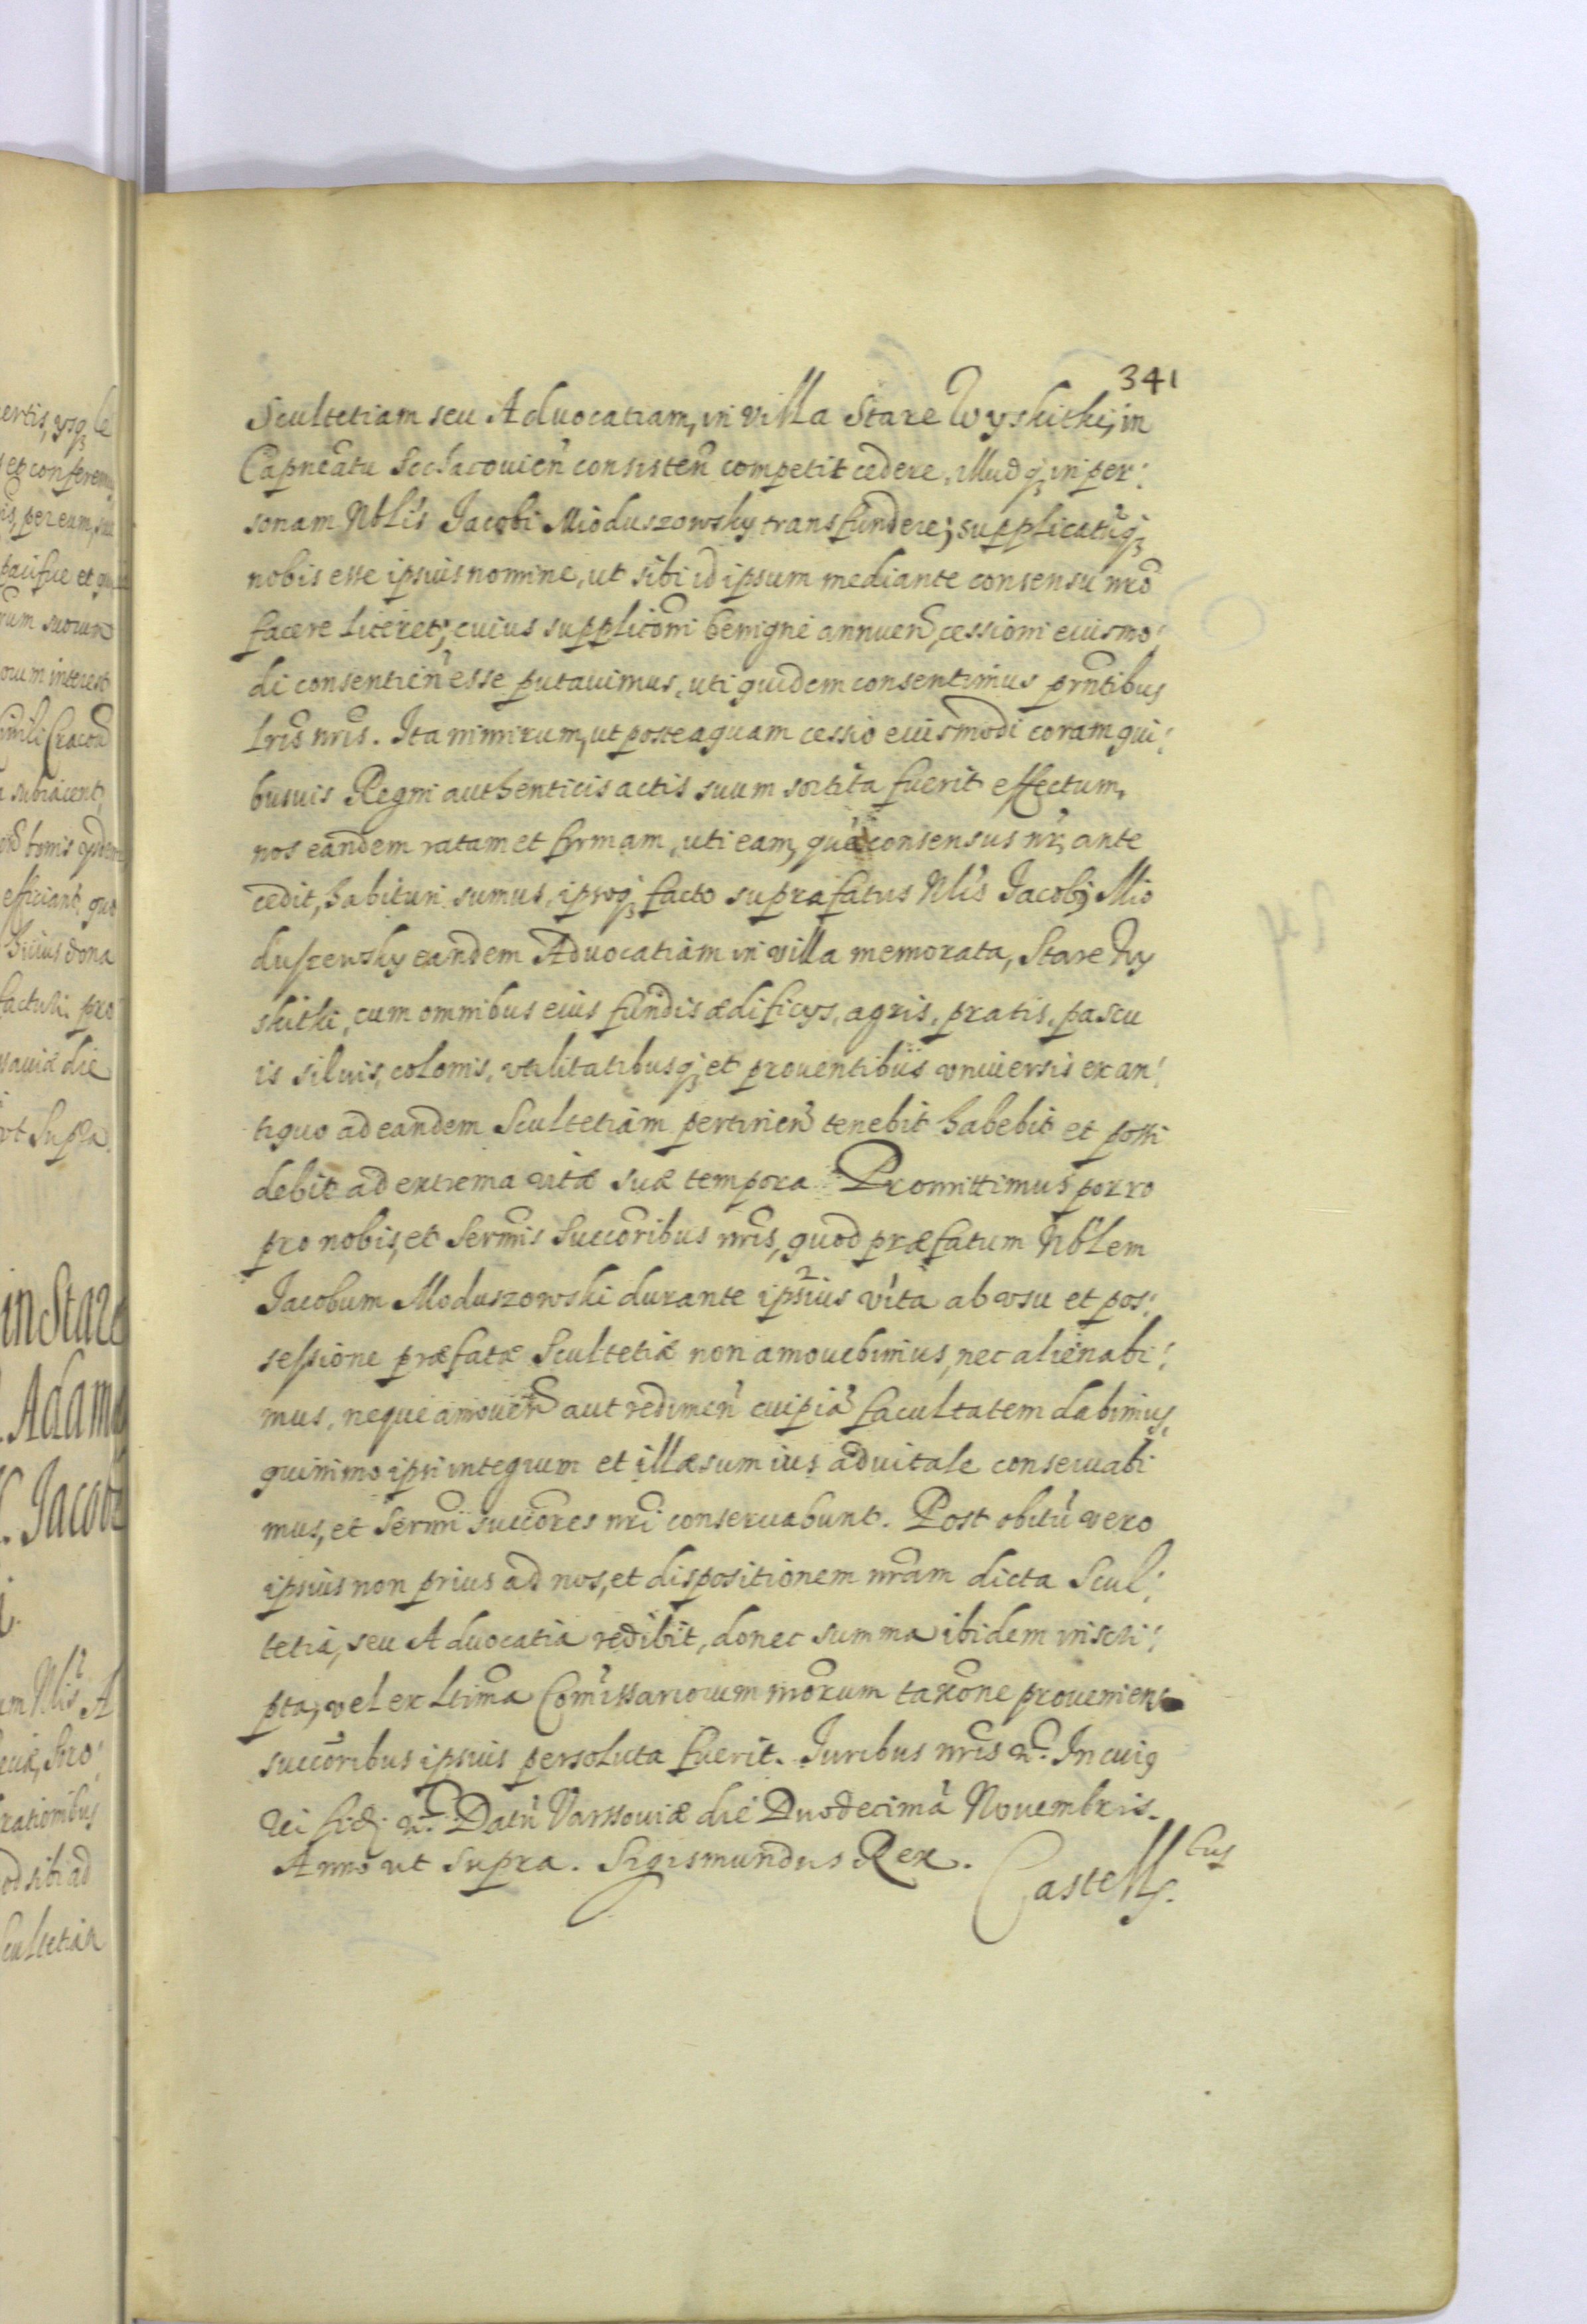 341
Scultetiam seu Aduocatiam, in villa Stare Wyskitki, in
Capneatu Sochacouien consisten competit cedere, illudq; in per:
sonam Nblis Jacobi Mioduszowsky transfundere; supplicatuq;
nobis esse ipsius nomine, ut sibi id ipsum mediante consensu nro
facere liceret; cuius supplicõni benigne annuen, cessioni eiusmo:
di consentien esse putauimus, uti quidem consentimus prntibus
Lris nris. Ita nimirum, ut posteaquam cessio eiusmodi coram qui:
busuis Regni authenticis actis suum sortita fuerit effectum,
nos eandem ratam et firmam, uti eam, quã consensus nr, ante
cedit, habituri sumus, ipsoq; facto suprafatus Nlis Jacobq Mio
duszewsky eandem Aduocatiam in villa memorata, Stare Wy
skitki, cum omnibus eius fundis ædificijs, agris, pratis, pascu
is siluis, colonis, vtilitatibusq; et prouentibus vniuersis ex an:
tiquo ad eandem Scultetiam pertinen tenebit habebit et possi
debit ad extrema vitæ suæ tempora. Promittimus porro
pro nobis, et Sermis Succoribus nris, quod præfatum Nblem
Jacobum Moduszowski durante ipsius vita ab vsu et pos:
sessione præfatæ Scultetiæ non amouebimus, nec alienabi:
mus, neque amouen aut redimen cuipiã facultatem dabimus,
quinimo ipsi integrum et illæsum ius aduitale conseruabi
mus, et Sermi succores nri conseruabunt. Post obitũ vero
ipsius non prius ad nos, et dispositionem nram dicta Scul:
tetia, seu Aduocatia redibit, donec summa ibidem inscri:
pta, vel ex ltima Comissariorum nrorum taxõne proueniens
succoribus ipsius persoluta fuerit. Iuribus nris &c. In cuiq
rei fidẽ &c. Datũ Varssouiæ die Duodecimã Nouembris.
Anno ut supra. Sigismundus Rex.
Castells.